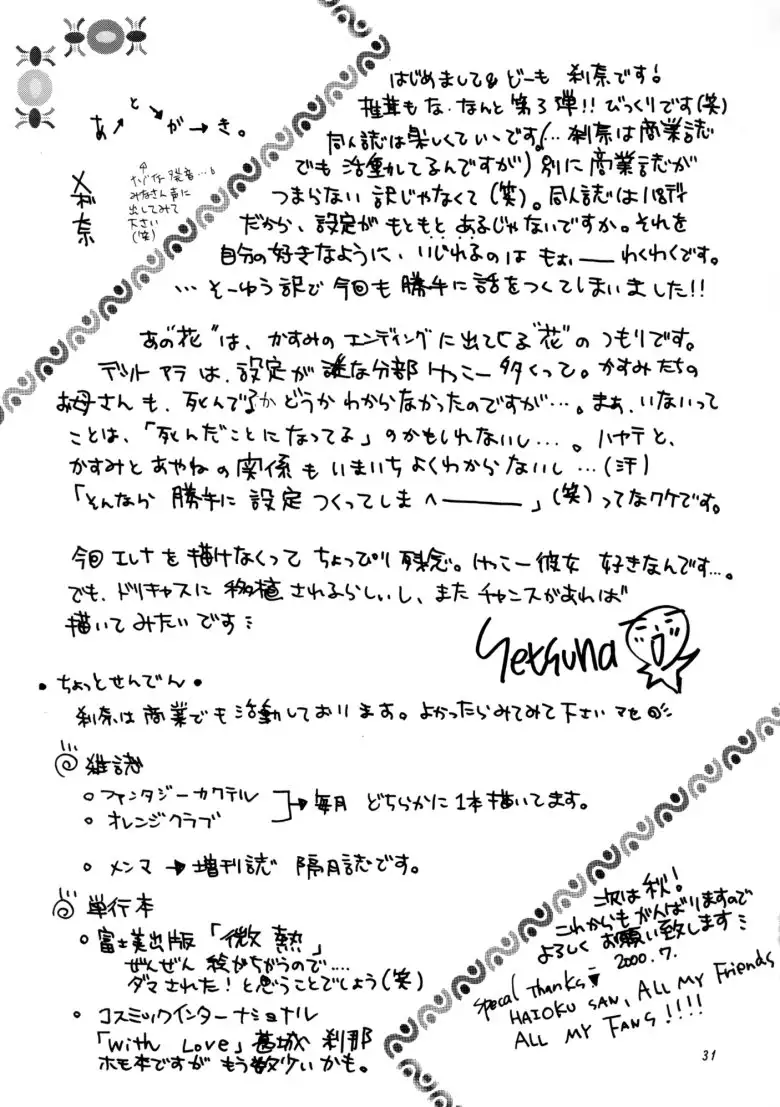 あとがき。
ナゾな発音…。
みなさん声に
出してみて
下さい
(笑)
はじめまして&どーも 刹奈です!
椎茸もな・なんと第3弾!! びっくりです(笑)
同人誌は楽しくていいです(… 刹奈は商業誌
でも活動してるんですが) 別に商業誌が
つまらない訳じゃなくて(笑)。同人誌はパロディ
だから、設定がもともとあるじゃないですか。それを
自分の好きなように、いじれるのは もぉーわくわくです。
…そーゆう訳で今回も勝手に話をつくてしまいました!!
あの"花"は、かすみのエンディングに出てくる"花"のつもりです。
デットアラは、設定が謎な分部けっこー多くって。かすみたちの
お母さんも、死んでるかどうかわからなかったのですが…。まぁ、いないって
ことは、「死んだことになってる」のかもしれないし…。ハヤテと、
かすみとあやねの関係もいまいちよくわからないし…(汗)
「そんなら勝手に設定つくってしまへー」(笑)ってなワケです。
今回エレナを描けなくってちょっぴり残念。けっこー彼女 好きなんです…。
でも、ドリキャスに移植されるらしいし、またチャンスがあれば
描いてみたいです
Setsuna
・ちょっとせんでん・
刹奈は商業でも活動しております。よかったらみてみて下さいマセ
雑誌
○ファンタジーカクテル
○オレンジクラブ
→毎月 どちらかに1本描いてます。
○メンマ→増刊誌 隔月誌です。
単行本
○富士美出版「微熱」
ぜんぜん絵がちがうので…
ダマされた!と思うことでしょう(笑)
○コスミックインターナショナル
「With Love」葛城 刹那
ホモ本ですが もう数少いかも。
次は秋!
これからもがんばりますので
よろしくお願い致します
2000.7.
Specal Thanks
HAIOKU SAN, ALL MY Friends
ALL MY FANS!!!!
31